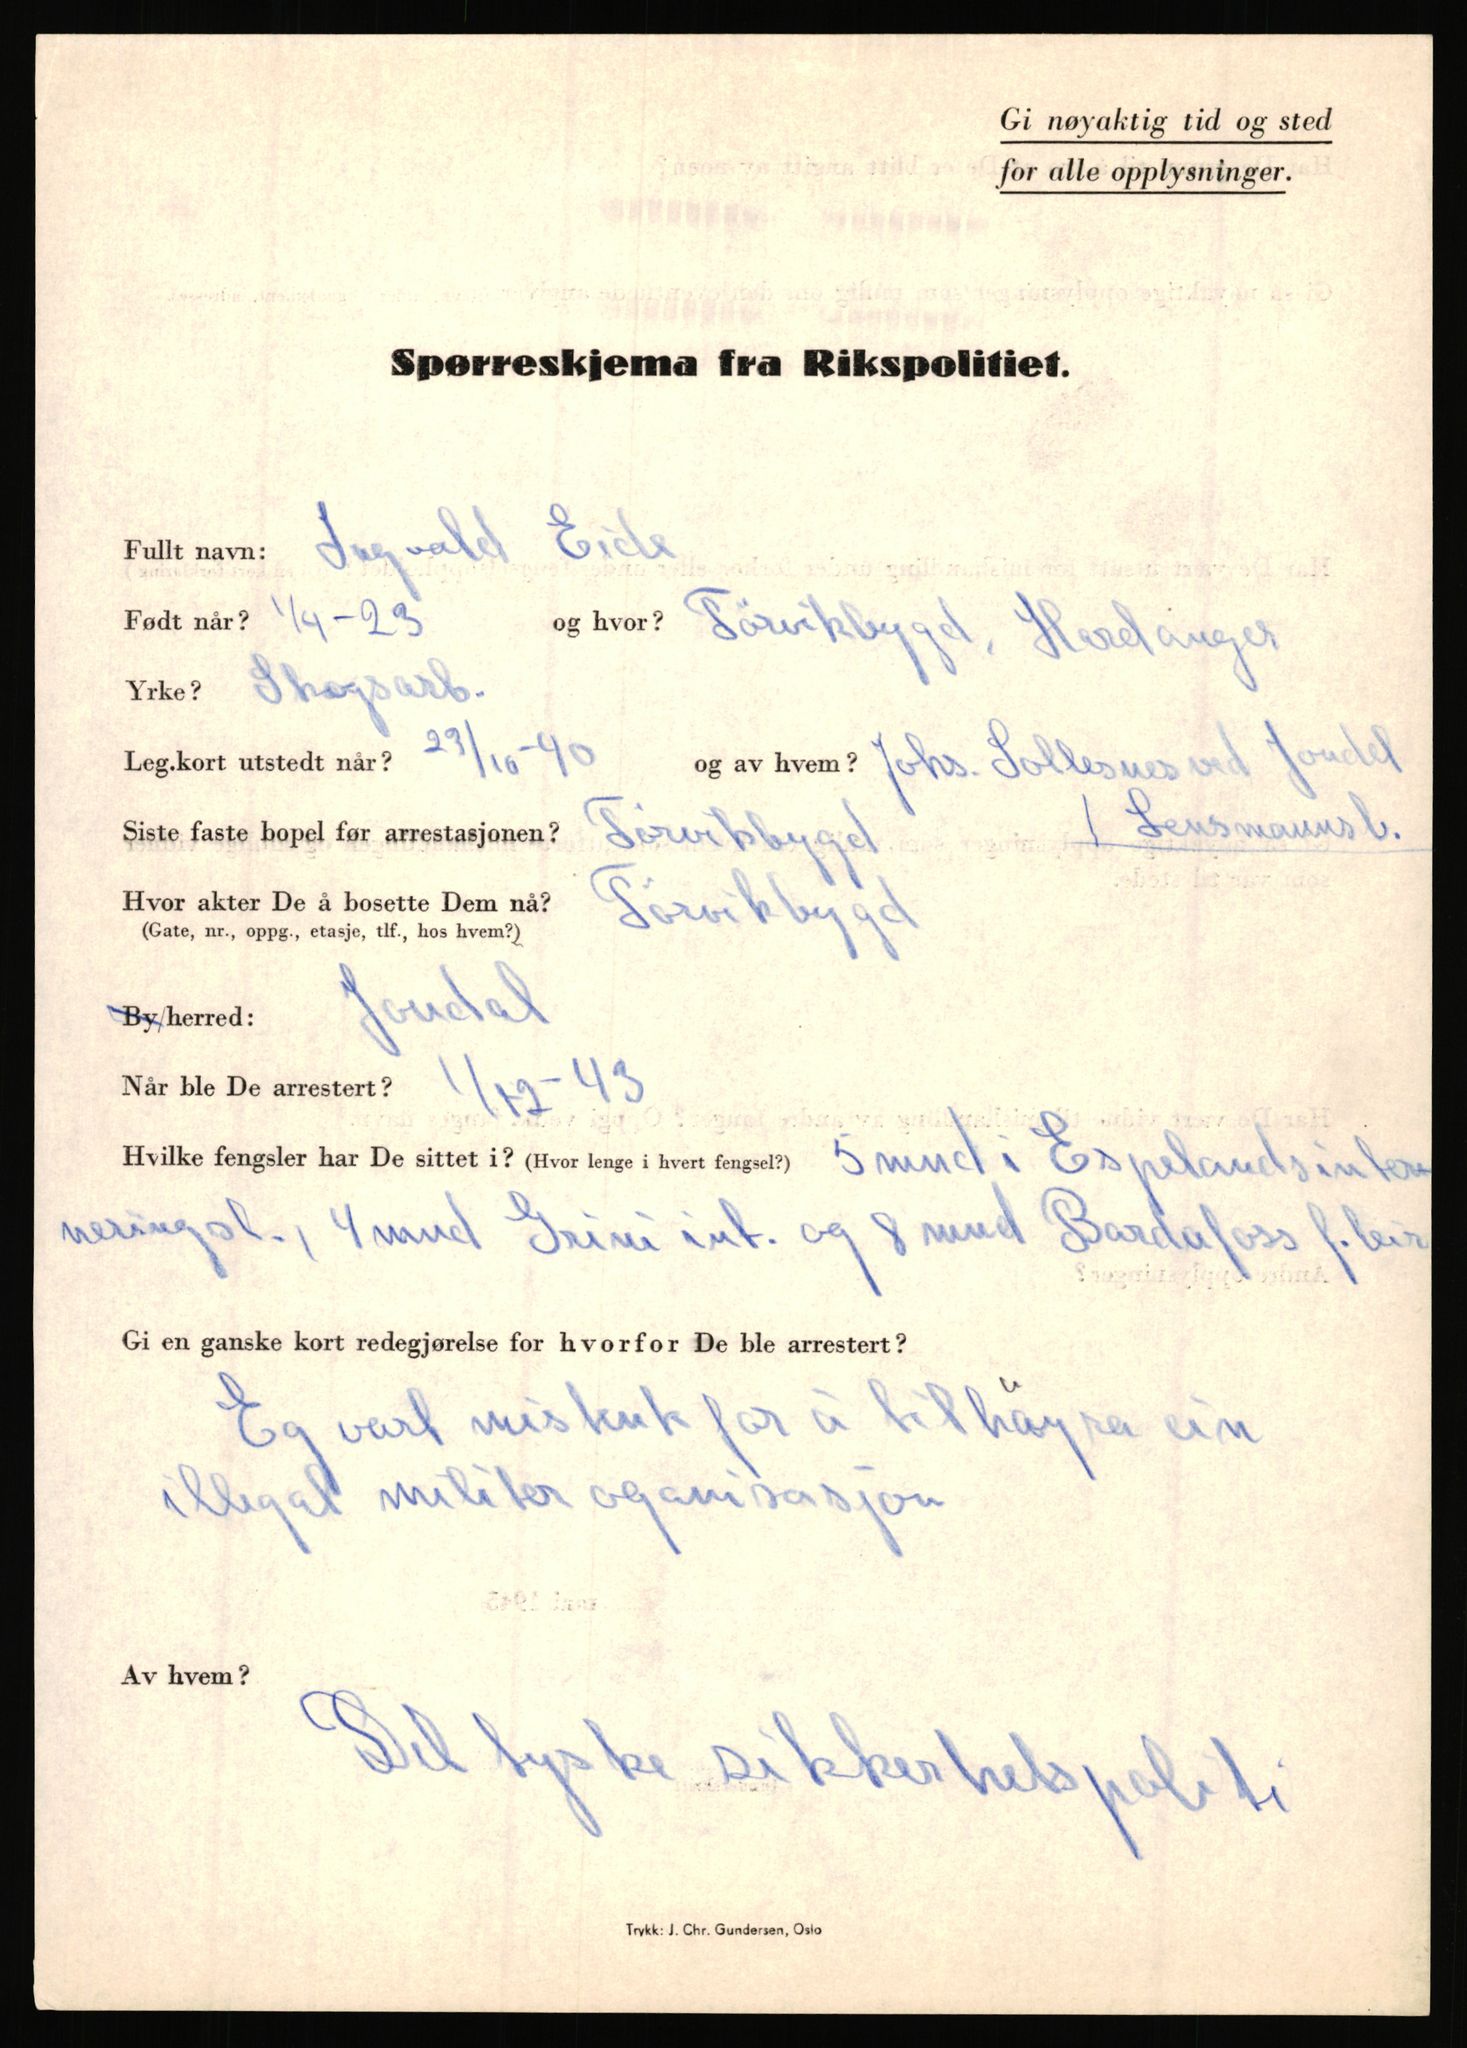 Gi nøyaktig tid og sted
for alle opplysninger.
Spørreskjema fra Rikspolitiet.
Fullt navn: Ingvald Eide
Født når? 1/4-23 og hvor? Törvikbygd, Hardanger
Yrke? Skogsarb.
Leg.kort utstedt når? 23/10-40 og av hvem? Johs. Sollesnes ved Jondal
Siste faste bopel før arrestasjonen? Törvikbygd / Lensmannsk.
Hvor akter De å bosette Dem nå? Törvikbygd
(Gate, nr., oppg., etasje, tlf., hos hvem?)
By/herred: Jondal
Når ble De arrestert? 1/12-43
Hvilke fengsler har De sittet i? (Hvor lenge i hvert fengsel?) 5 mnd i Espelandsinter
neringsl., 4 mnd Grini int. og 8 mnd Bardafoss f.leir
Gi en ganske kort redegjørelse for hvorfor De ble arrestert?
Eg vart mistenk for å tilhöyra ein
illegal militer oganisasjon
Av hvem?
Det tyske sikkerhetspoliti
Trykk: J. Chr. Gundersen, Oslo